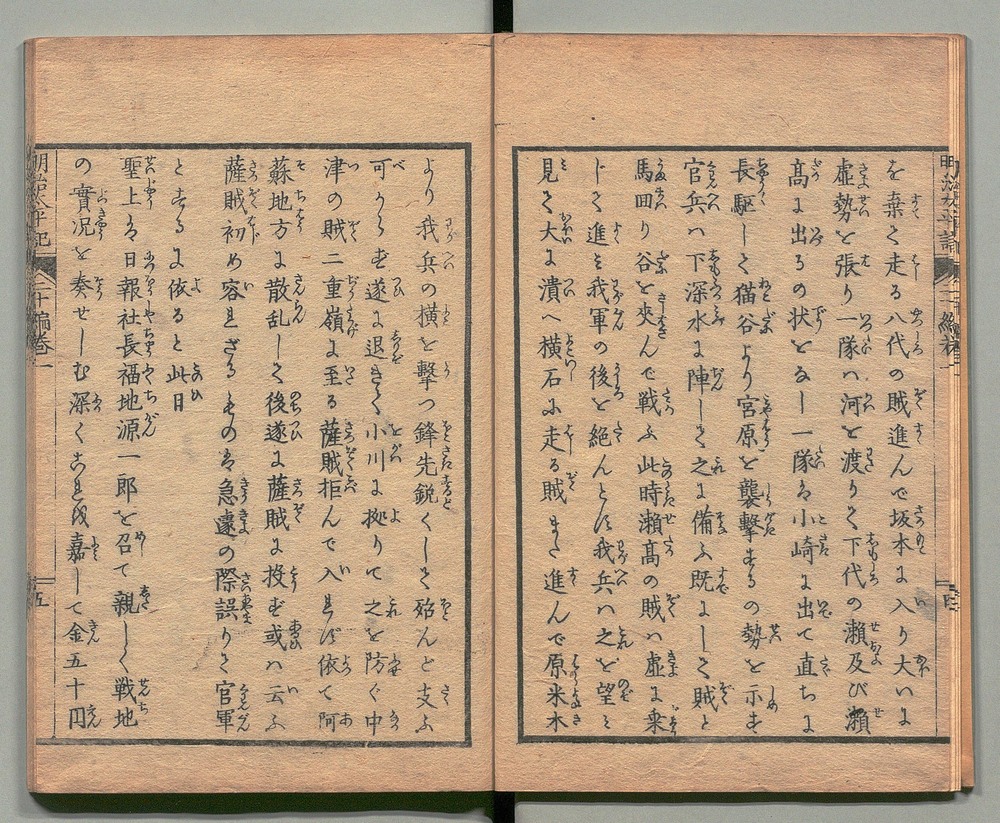 を棄て走る八代の賊進んで坂本に入り大いに
虚勢を張り一隊ハ河を渡りて下代の瀬及び瀬
高に出るの状をなし一隊は小崎に出て直ちに
長駆して猫谷より宮原を襲撃するの勢を示す
官兵ハ下深水に陣して之に備ふ既にして賊と
馬田り谷を夾んで戦ふ此時瀬高の賊ハ虚に乗
じて進ミ我軍の後を絶んとす我兵ハ之を望ミ
見て大に潰へ横石に走る賊また進んで原米木
より我兵の横を撃つ鋒先鋭くして殆んど支ふ
可からず遂に退きて小川に拠りて之を防ぐ中
津の賊二重嶺に至る薩賊拒んで入れず依て阿
蘇地方に散乱して後遂に薩賊に投ず或ハ云ふ
薩賊初め容れざるものは急遽の際誤りて官軍
とするに依ると此日
聖上は日報社長福地源一郎を召て親しく戦地
の實况を奏せしむ深くこれを嘉して金五十円
明治太平記 二十編巻一 五